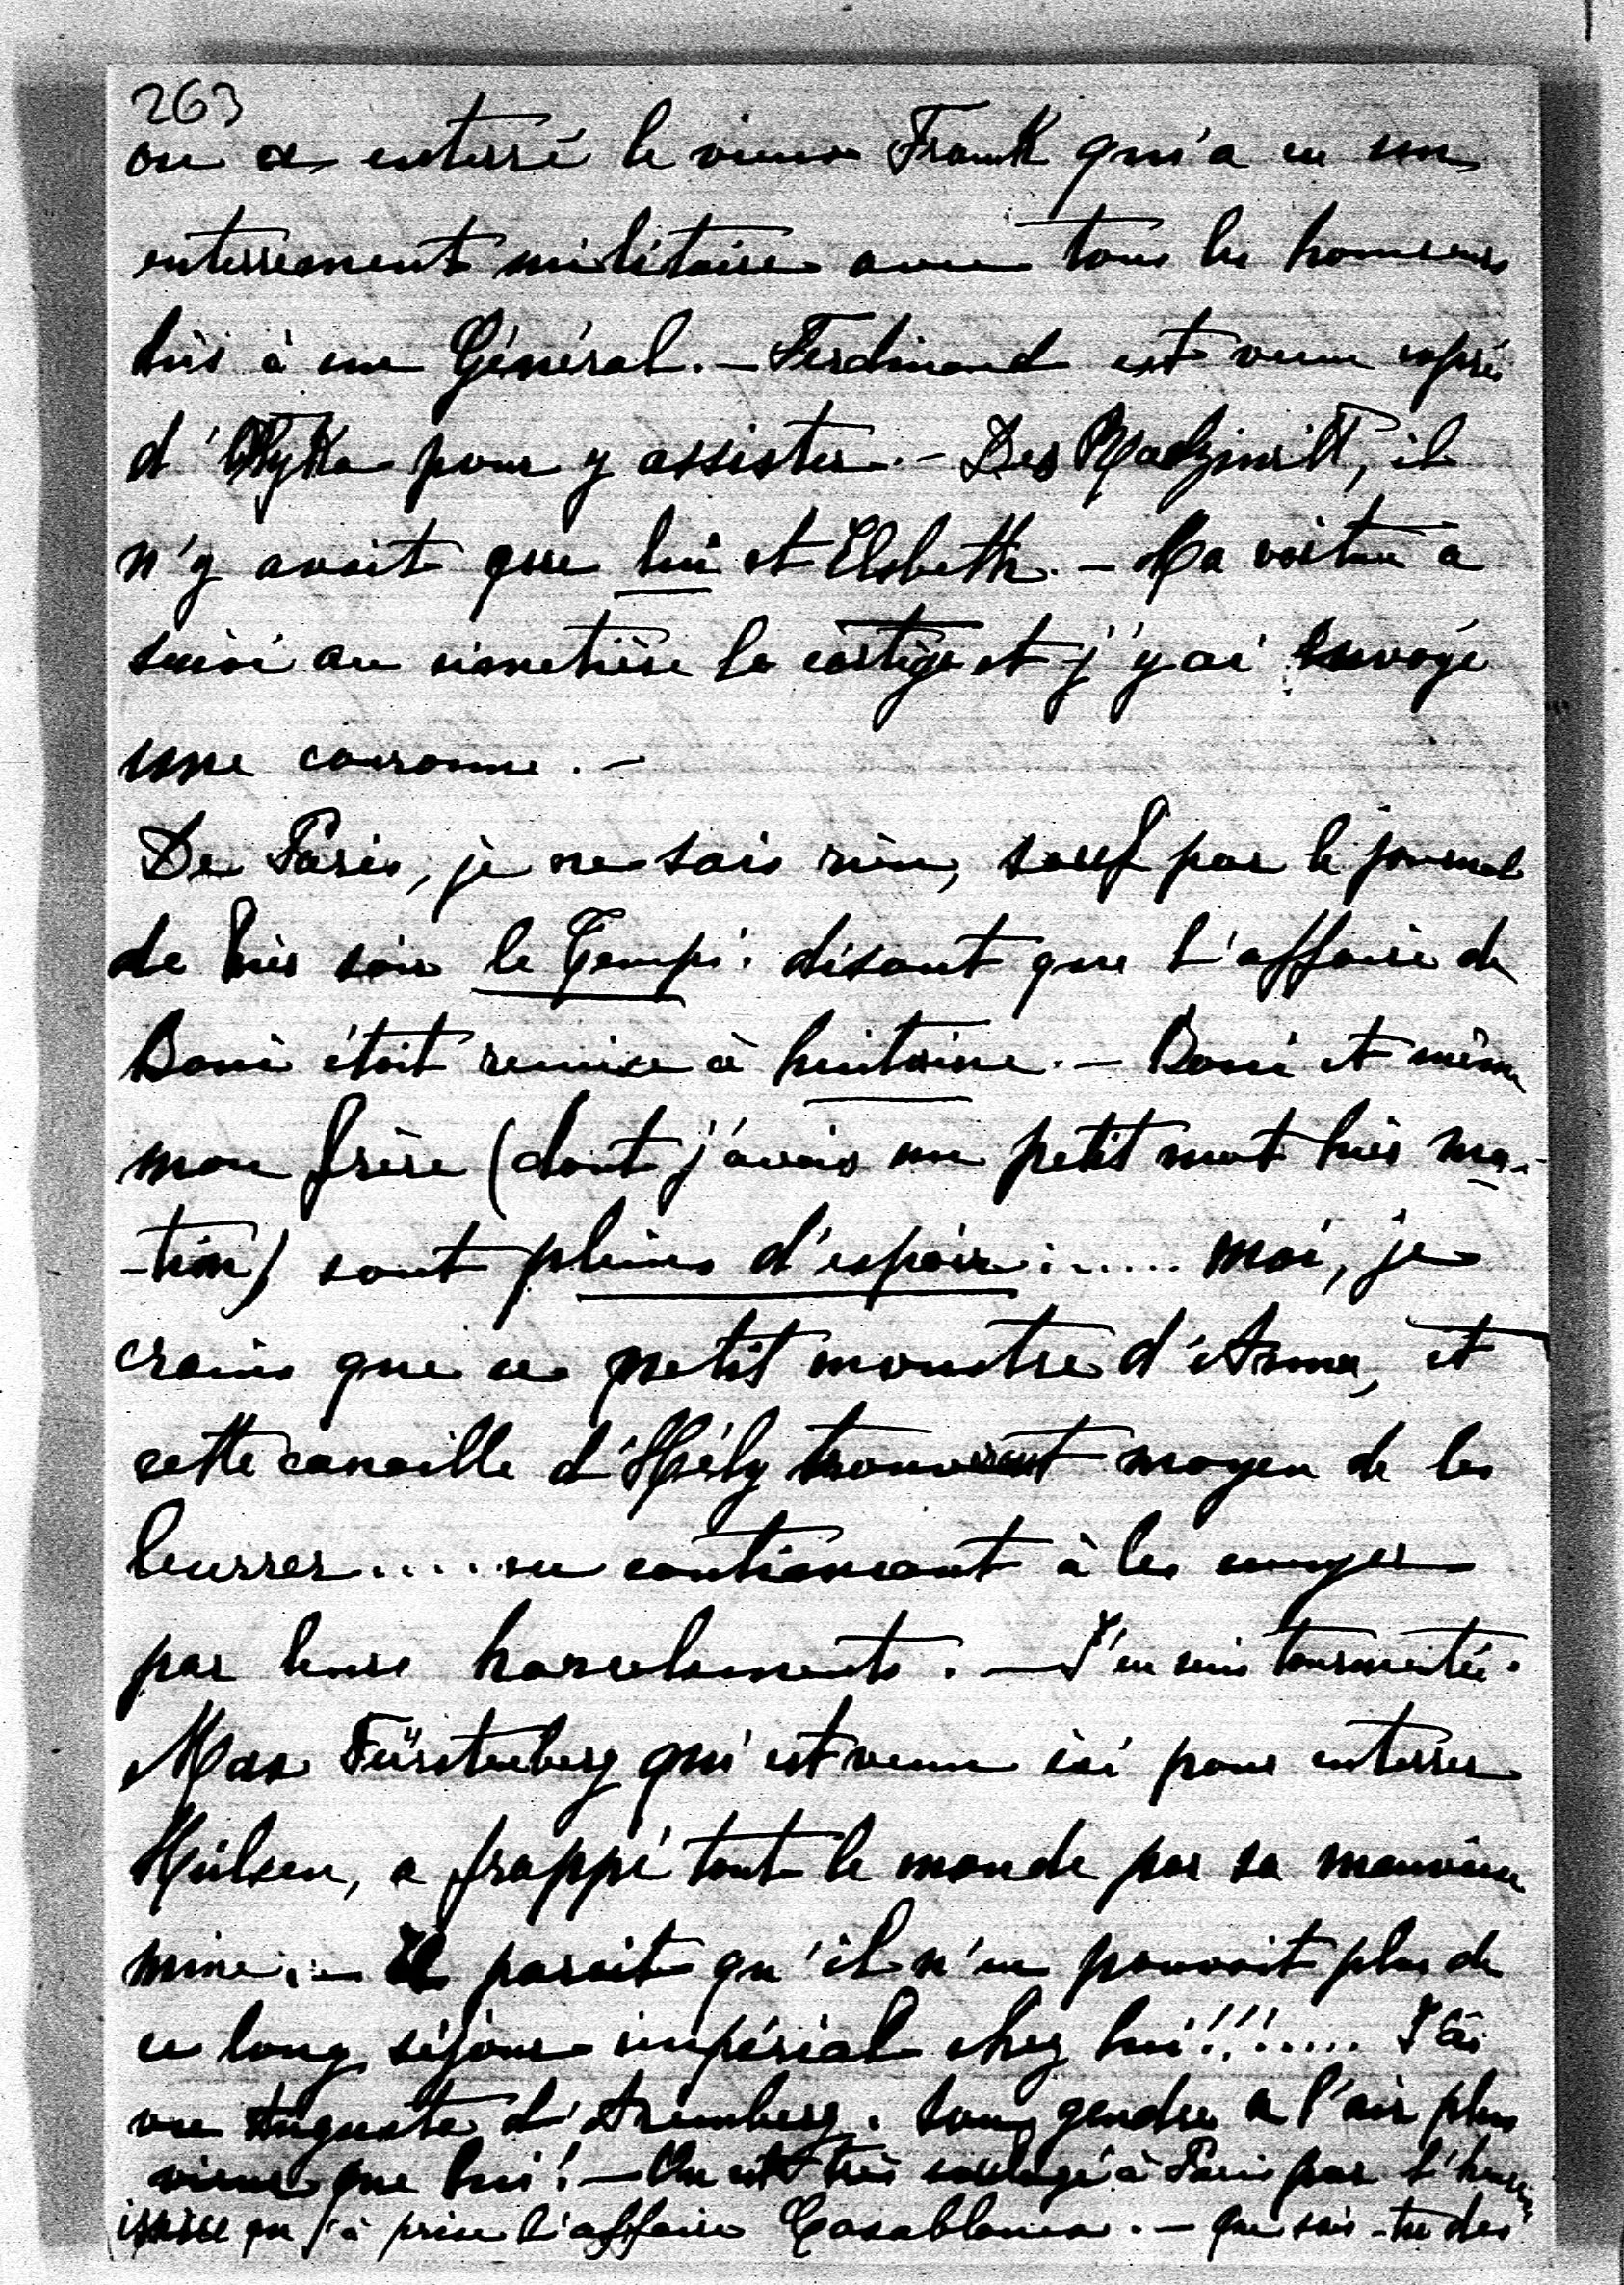 263
on a enterré le vieux Frank qui a eu un
enterrement militaire avec tous les honneurs
dûs à un Général. – Ferdinand est venu exprès
d'Olyka pour y assister. – Des Radziwill, il
n'y avait que lui et Elsbeth. – Ma voiture a
suivi au cimetière le cortège et j'y ai envoyé
une couronne. –
De Paris, je ne sais rien, sauf par le journal
de hier soir le Temps: disant que l'affaire de
Boni était remise à huitaine. – Boni et même
mon frère (dont j'avais un petit mot hier ma-
-tin) sont pleins d'espoir:...... moi, je
crains que ce petit monstre d'Anna, et
cette canaille d'Hély trouveront moyen de les
leurrer..... en continuant à les
par leurs harcelements. – J'en suis tourmentée.
Max Fürstenberg qui est venu ici pour enterrer
Hülsen, a frappé tout le monde par sa mauvaise
mine. – Il parait qu'il n'en pouvait plus de
ce long séjour impérial chez lui!!!..... J'ai
vu Auguste d'Aremberg. Son gendre a l'air plus
vieux que lui! – On est très soulagé à Paris par l'heureuse
issue qu'a prise l'affaire Casablanca. – Que sais-tu des